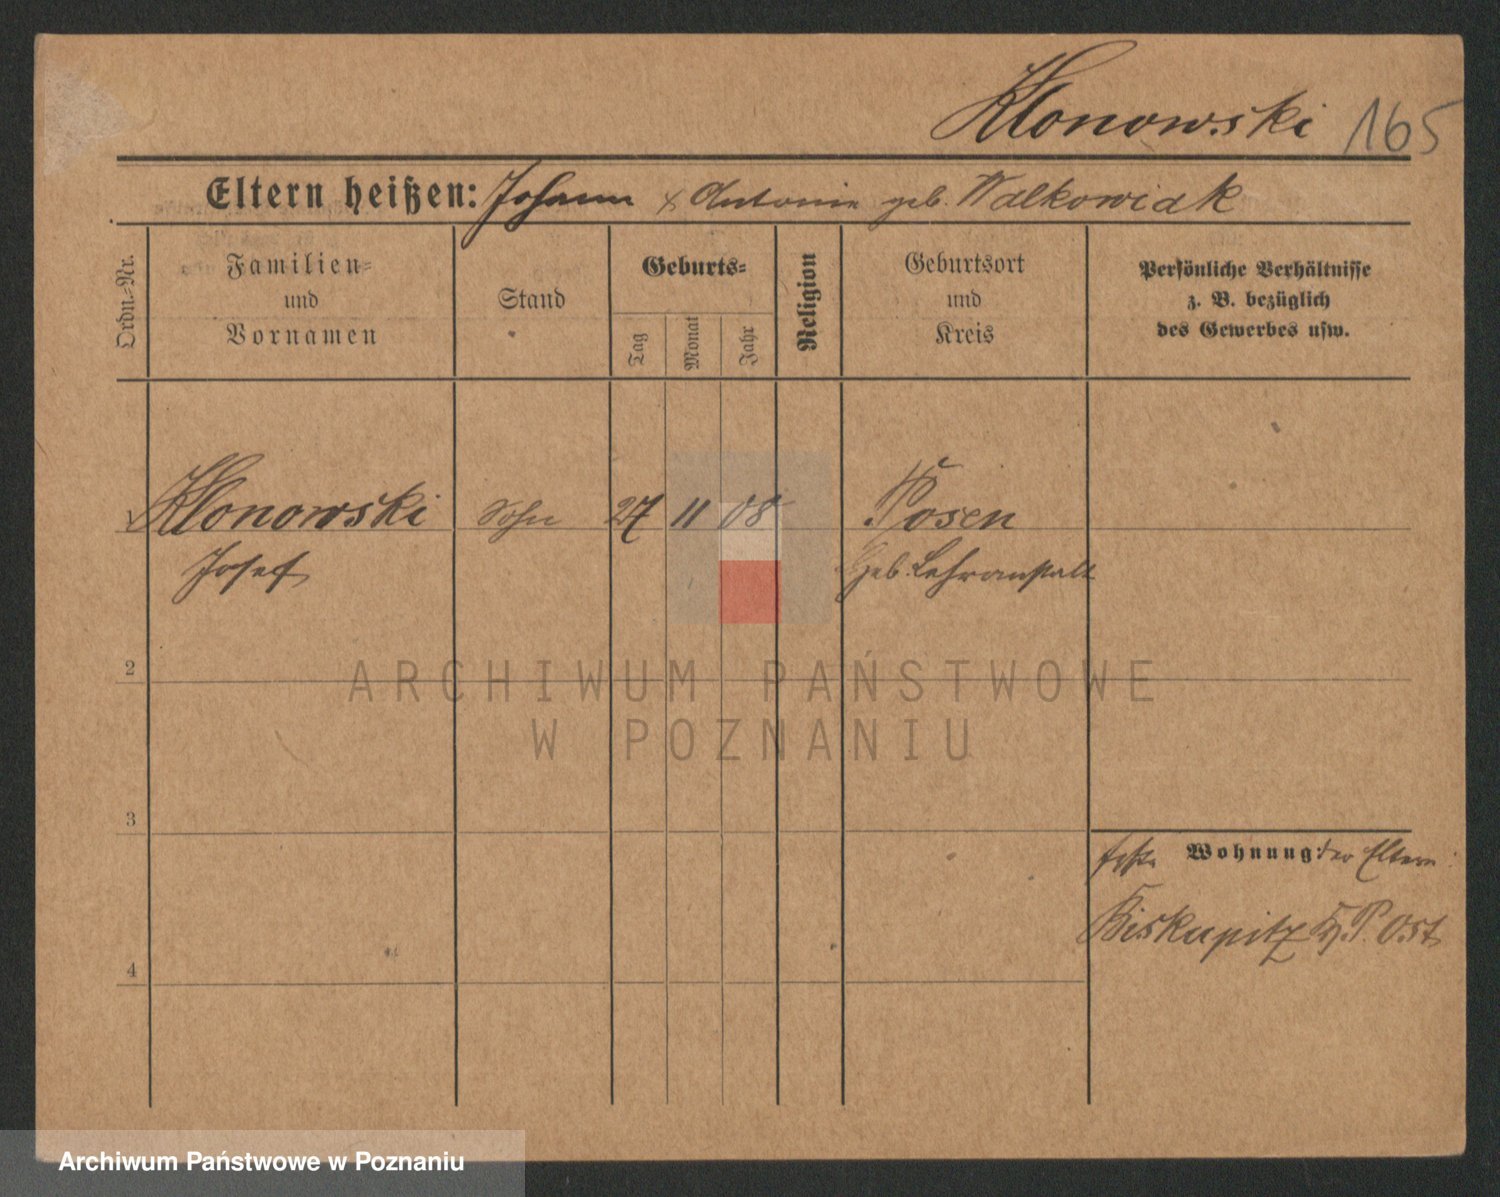 Klonowski 165
Eltern heißen: Johann & Antonie geb. Walkowiak
Ordn.-Nr.
Familien-
und
Vornamen
Stand
Geburts-
Tag
Monat
Jahr
Religion
Geburtsort
und
Kreis
Persönliche Verhältnisse
z. B. bezüglich
des Gewerbes usw.
Klonowski Sohn 27 11 08 Posen
Josef Geb. Lehranstalt
2
3
4
Wohnung: der Eltern:
Biskupitz Kr. P. Ost
ARCHIWUM PAŃSTWOWE
W POZNANIU
Archiwum Państwowe w Poznaniu